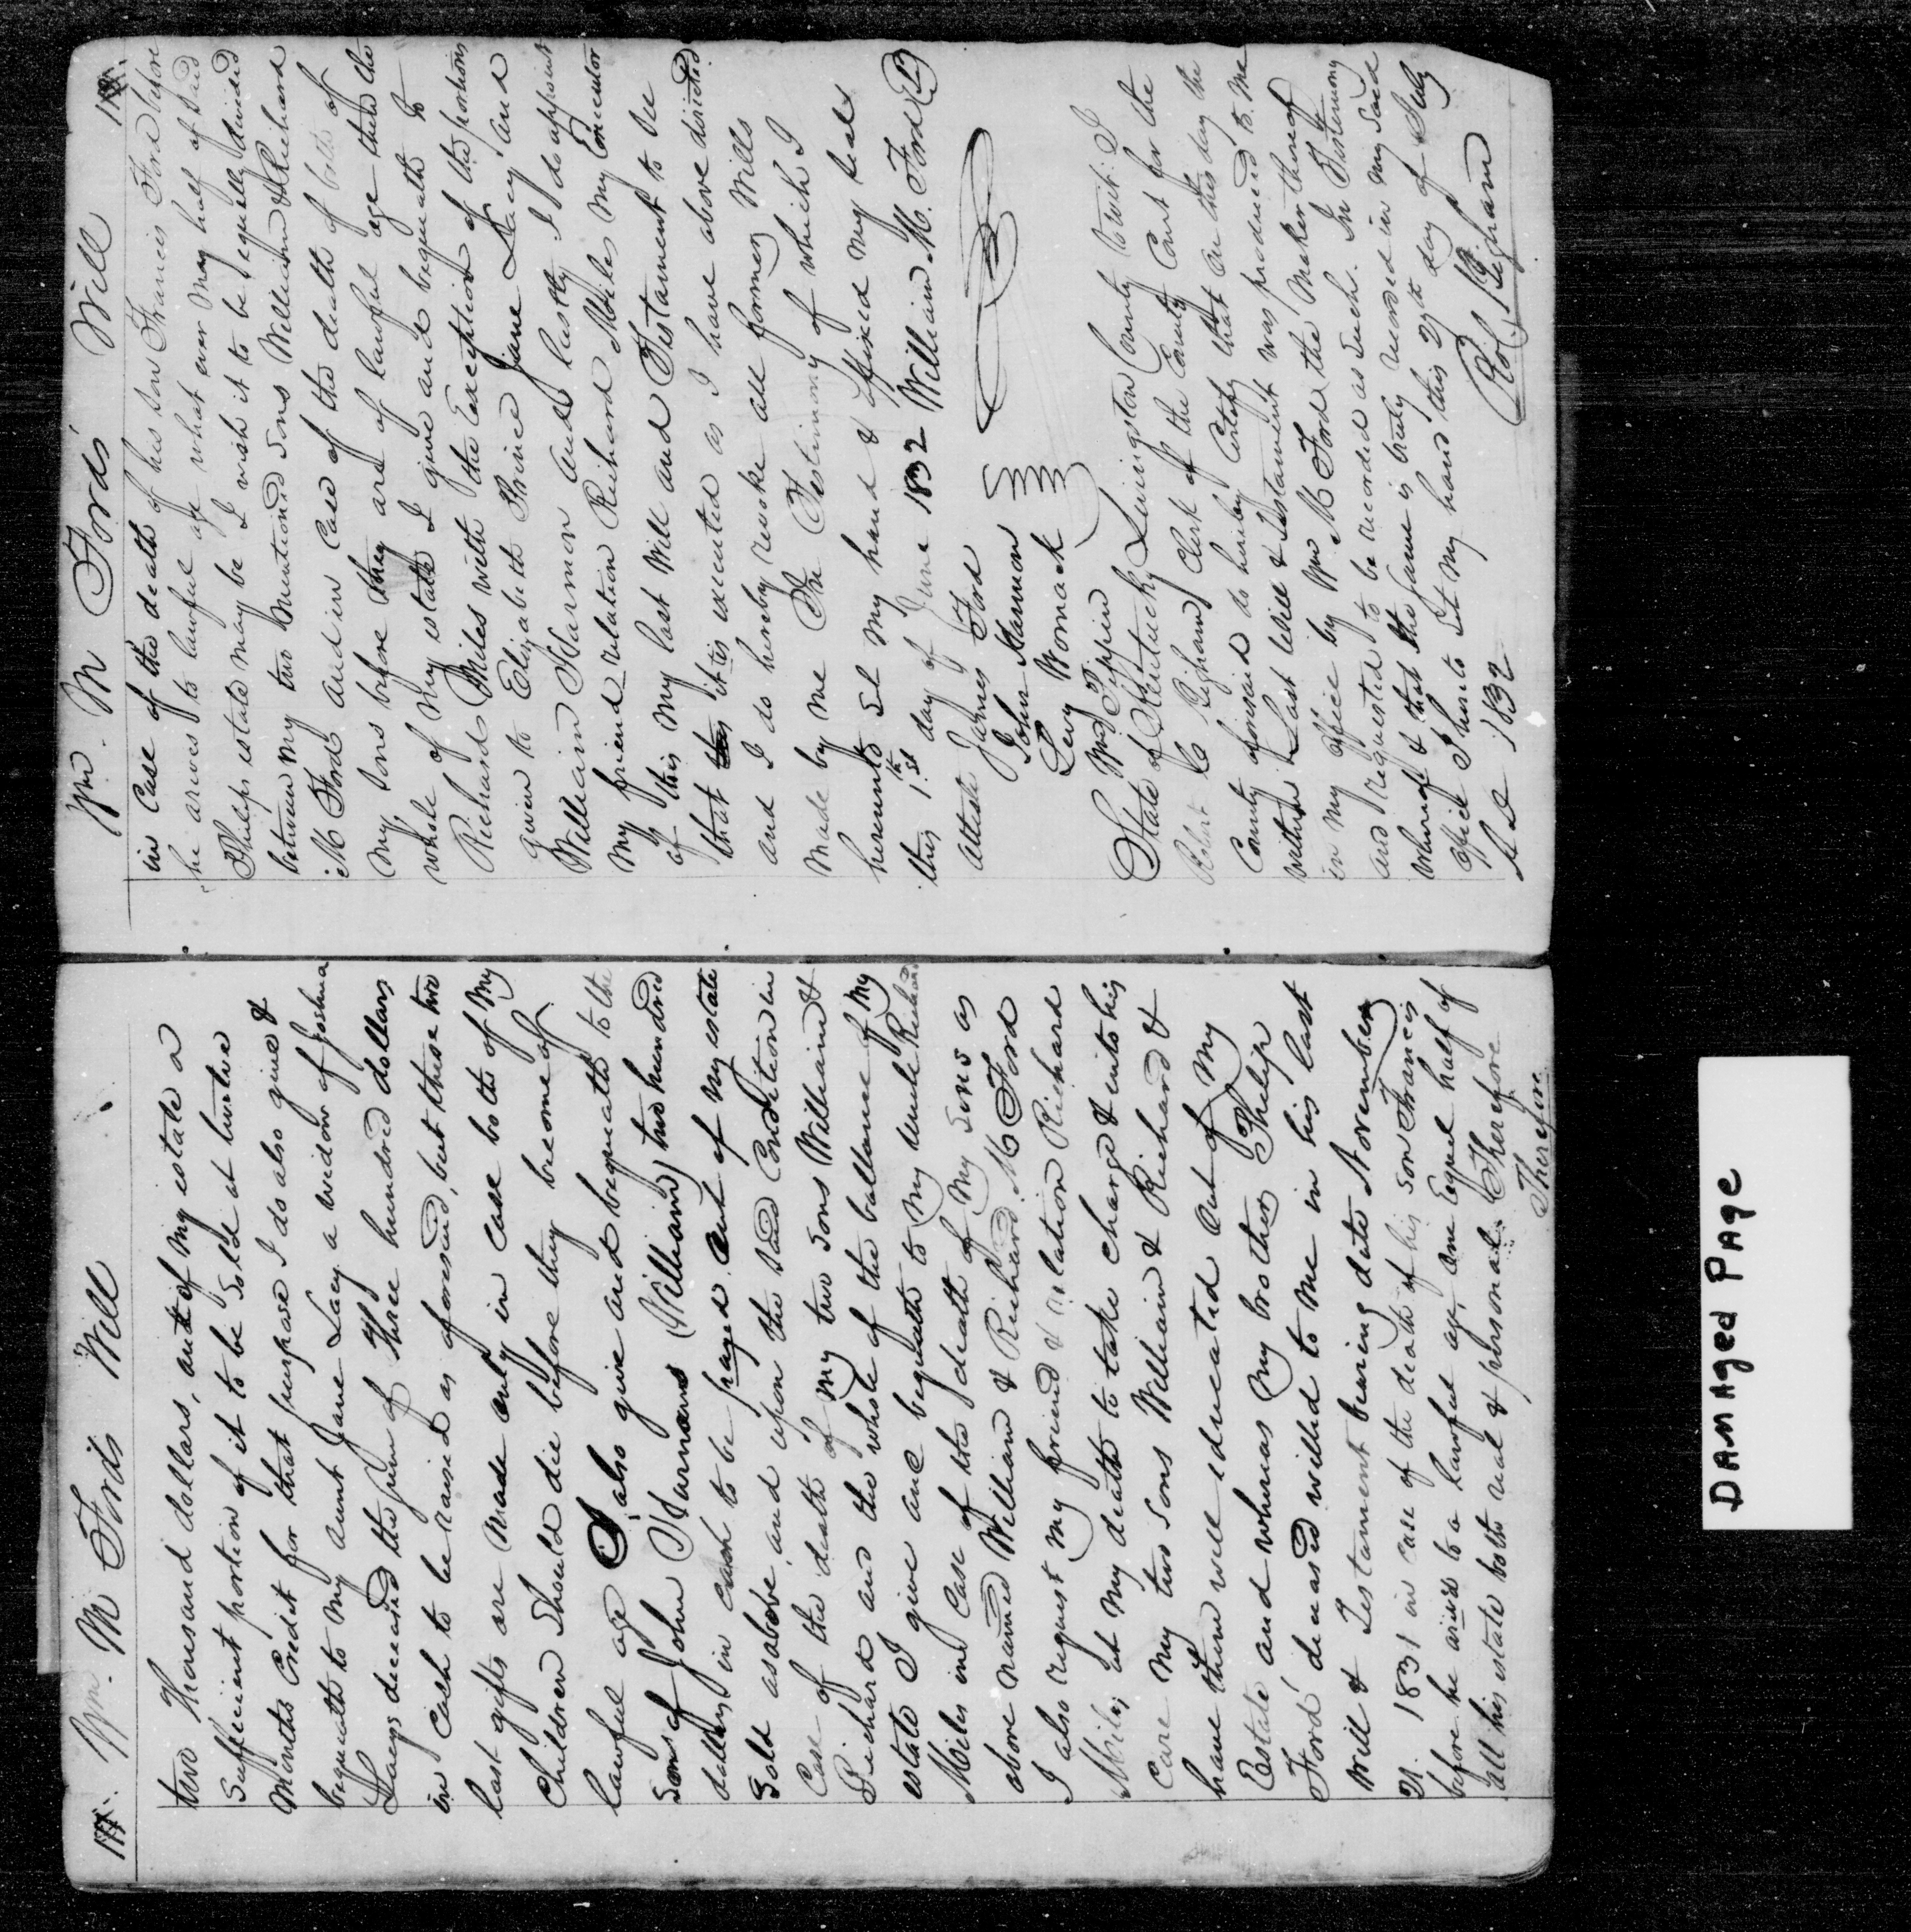 Wm. M Ford's Will
two Thousand dollars, out of My estate a
Sufficient portion of it to be Sold at twelve
Months Credit for that purpose I do also give &
bequeath to My aunt Jane Lacy a widow of Joshua
Lacys deceased the Sum of Three hundred dollars
in Cash to be raised as aforesaid, but these two
last gifts are Made only in Case both of My
Children Should die before they become of
lawful age I also give and bequeath to the
Sons of John Harmons (William) two hundred
dollars in cash to be payed out of My estate
Sold as above and upon the Said Condition in
Case of the death of My two Sons William &
Richard and the whole of the ballance of My
estate I give and bequeath to My Uncle Richard
Miles in Case of the death of My Sons as
above named William & Richard M Ford
I also request My friend & relation Richard
Miles at My death to take charge & into his
Care My two Sons William & Richard &
have them well educated out of My
Estate and whereas My brother Philip
Ford deceased willed to Me in his last
Will & Testament bearing date November
21. 1831 in Case of the death of his Son Francis
before he arives to a lawful age, one Equel half of
all his estate both real & personal. Therefore
Therefore
Wm. M Ford's Will
in Case of the death of his Son Francis Ford before
he arives to lawful age what ever May half of Said
Philips estate may be I wish it to be equelly devided
between My two Mentioned Sons William & Richard
M Ford and in Case of the death of both of
My Sons before they are of lawful age then the
whole of My estate I give and bequeath to
Richard Miles with the Exception of the portions
given to Elizabeth Jane Lacy and
William Harmon and lastly I do appoint
My friend relation Richard Miles My Executor
of this My last Will and Testament to See
that it is executed as I have above directed
and I do hereby revoke all former Wills
Made by Me In Testimony of which I
hereunto Set My hand & affixed My Seal
this 1st day of June 1832 William M. Ford
attest James Ford
John Harmon
Levy Womack
Wm Tippin
State of Kentucky Livingston County to wit: I
Robert C Bigham Clerk of the County Court for the
County aforesaid do hereby Certify that on this day the
within Last Will & Testament was produced to Me
in My office by Wm M Ford the Maker thereof
and requested to be recorded as Such. In Testimony
whereof & that the Same is truly recorded in My Said
office I hereto Set My hand this 27th day of July
A D 1832 Ro C Bigham
DAMAged PAge